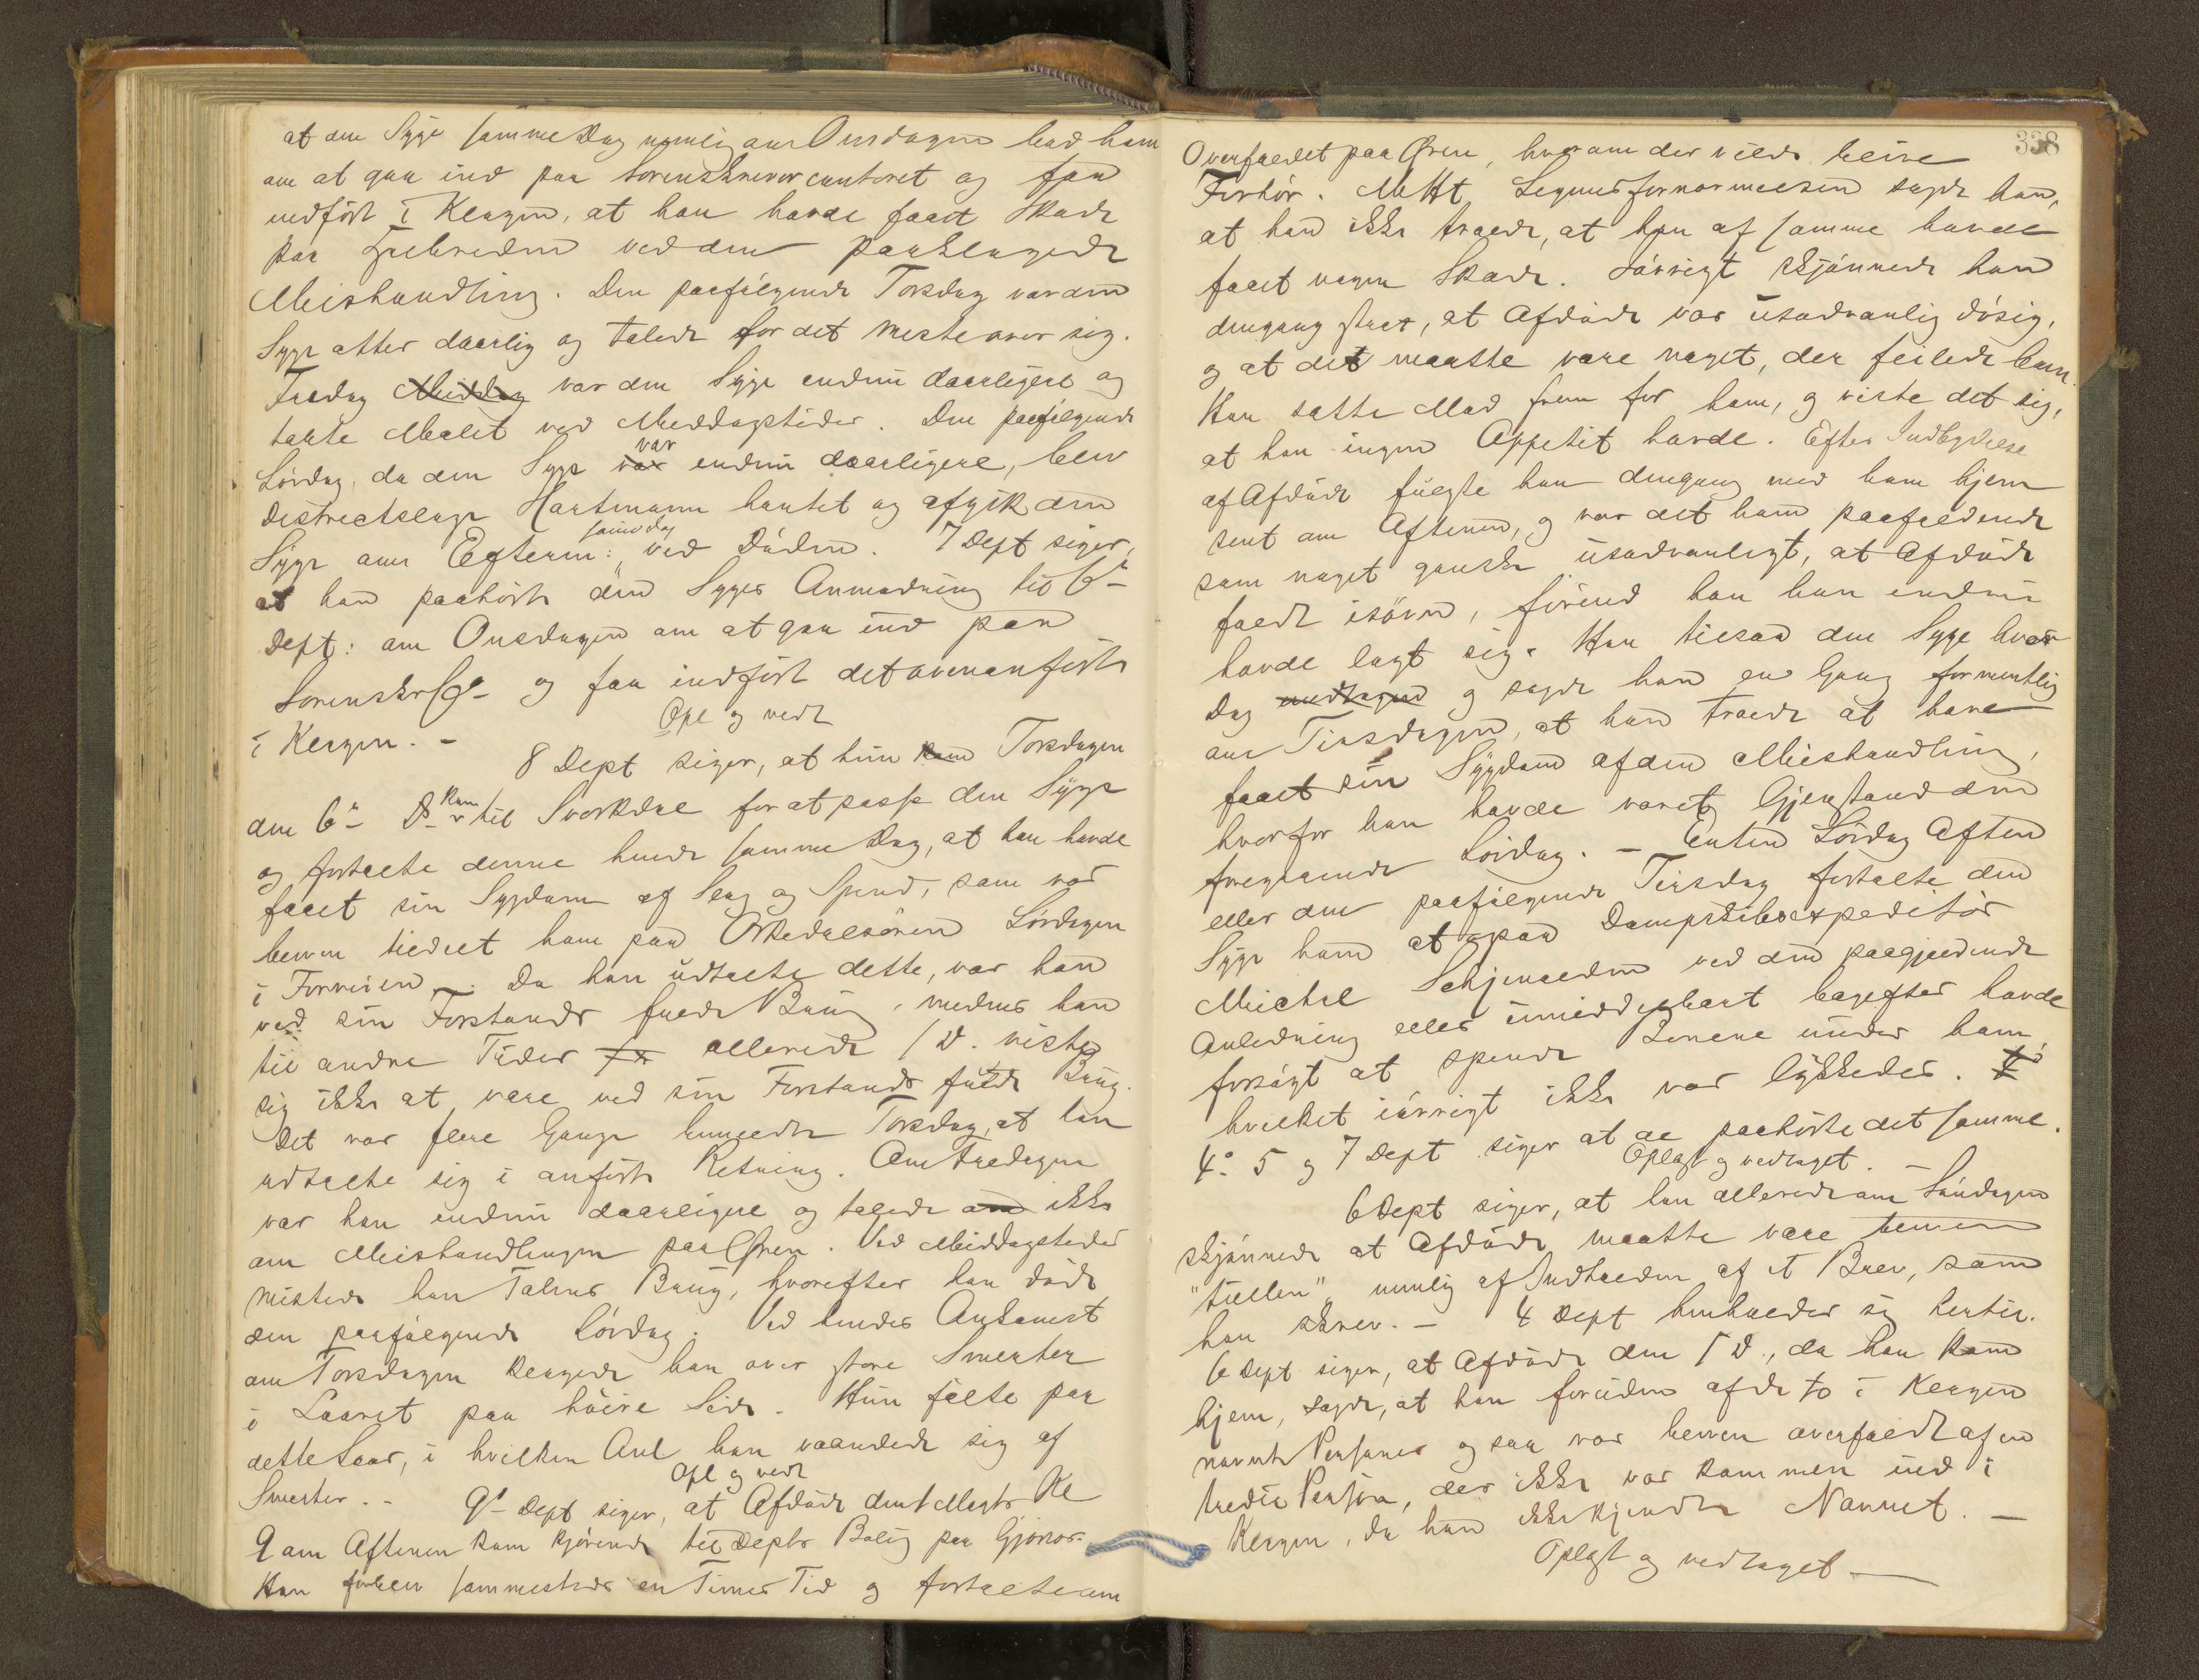 at den Syge samme Dag nemlig om Onsdagen bad ham
om at gaa ind paa Sorenskrivercontoret og faa
indført i Klagen, at han havde faaet Skade
paa Hulbreden ved den paaklagede
Mishandling. Den paafølgende Torsdag var den
Syge atter daarlig og talede for det meste over sig.
Fredag Middag var den Syge endnu daarligere og
tabte Mælet ved Middagstider. Den paafølgende
Lørdag, da den Syge var var endnu daarligere, blev
Districtslæge Hartmann hentet og afgik den
Syge om Efterm: samme Dag ved Døden. 7 Dept siger,
at han paahørte den Syges Anmodning til 6te
Dept: om Onsdagen om at gaa ind paa
Sorenskr Co og faa indført det ovenanførte
i Klagen. - Opl og vedt
8 Dept siger, at hun kom Torsdagen
den 6te Ds kom til Svorkdal for at passe den Syge
og fortalte denne hende samme Dag, at han havde
faaet sin Sygdom af Slag og Spend, som var
bleven tildelt ham paa Orkedalsøren Lørdagen
i Forveien. Da han udtalte dette, var han
ved sin Forstands fulde Brug, medens han
til andre Tider allerede 1 D. viste
sig ikke at være ved sin Forstands fulde Brug.
Det var flere Gange bemeldte Torsdag, at han
udtalte sig i anførte Retning. Om Fredagen
var han endnu daarligere og talede om ikke
om Mishandlingen paa Øren. Ved Middagstider
mistede han Talens Brug, hvorefter han døde
den paafølgende Lørdag. Ved hendes Ankomst
om Torsdagen klagede han over store Smerter
i Laaret paa høire Side. Hun følte paa
dette Laar, i hvilken Anl han vaandede sig af
Smerter. - Opl og vedt
9de Dept siger, at Afdøde den 1 Kl
9 om Aftenen kom kjørende til Depts Bolig paa Gjønnes.
Han forblev sammesteds en Times Tid og fortalte om
338
Overfaldet paa Øren, hvorom der vilde blive
Forhør. M Ht Legemsfornærmelsen sagde han,
at han ikke troede, at han af samme havde
faaet nogen Skade. Iøvrigt skjønnede han
dengang strax, at Afdøde var usædvanlig døsig,
og at det maatte være noget, der feilede ham.
Han satte Mad frem for ham, og viste det sig,
at han ingen Appetit havde. Efter Indbydelse
af Afdøde fulgte han dengang med ham hjem
sent om Aftenen, og var det ham paafaldende
som noget ganske usædvanligt, at Afdøde
faldt isøvn, førend han han endnu
havde lagt sig. Han tilsaa den Syge hver
Dag og sagde han en Gang formentlig
om Tirsdagen, at han troede at have
faaet sin Sygdom af den Mishandling,
hvorfor han havde været Gjenstand den
foregaaende Lørdag. - Enten Lørdag Aften
eller den paafølgende Tirsdag fortalte den
Syge ham at ogsaa Dampskibsexpeditør
Michal Schjenaldn ved den paagjældende
Anledning eller umiddelbart bagefter havde
forsøgt at spende Benene under ham,
hvilket iøvrigt ikke var lykkedes.
4de 5 og 7 Dept siger at de paahørte det samme.
Oplæst og vedtaget. -
6 Dept siger, at han allerede om Søndagen
skjønnede at Afdøde maatte være bleven
"tullen", nemlig af Indholden af et Brev, som
han skrev. - 4 Dept henholder sig hertil.
6 Dept siger, at Afdøde den 1 D., da han kom
hjem, sagde, at han foruden af de to i Klagen
nævnte Personer ogsaa var bleven overfaldt af en
tredie Person, der ikke var kommen ind i
Klagen, da han ikke kjendte Navnet. -
Oplæst og vedtaget -